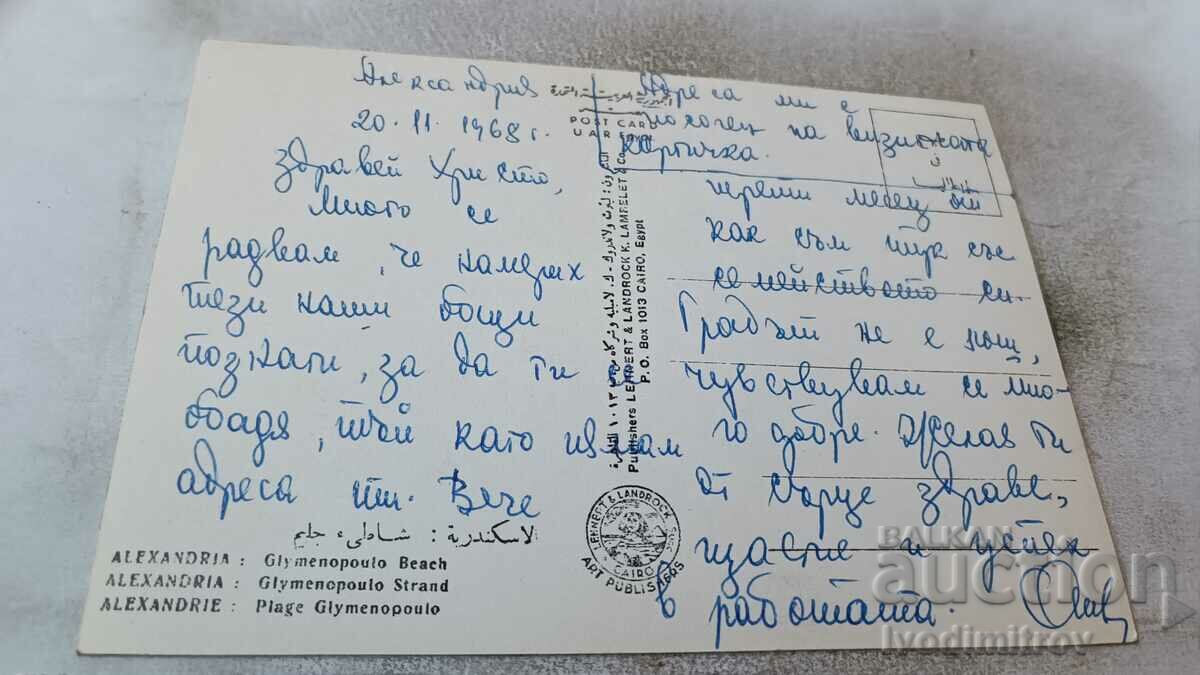 Александрия
20.11.1968 г.
Здравей Христо,
Много се
радвам, че намерих
тези наши общи
познати, за да ти
обадя, тъй като нямам
адреса ти. Вече
Адреса ми е
посочен на визитната
картичка.
четвърти месец
как съм тук със
семейството си.
Градът не е лош,
чувствувам се мно-
го добре. Желая ти
от сърце здраве,
щастие и успех
в работата.
الجمهورية العربية المتحدة
POST CARD
U A R EGYPT
Publishers LEHNERT & LANDROCK K. LAMBELET & Co
P. O. Box 1013 CAIRO, Egypt
LEHNERT & LANDROCK SUCC.
CAIRO
ART PUBLISHERS
الاسكندرية : شاطىء جليم
ALEXANDRIA : Glymenopoulo Beach
ALEXANDRIA : Glymenopoulo Strand
ALEXANDRIE : Plage Glymenopoulo
BALKAN
auction
Ivodimitrov